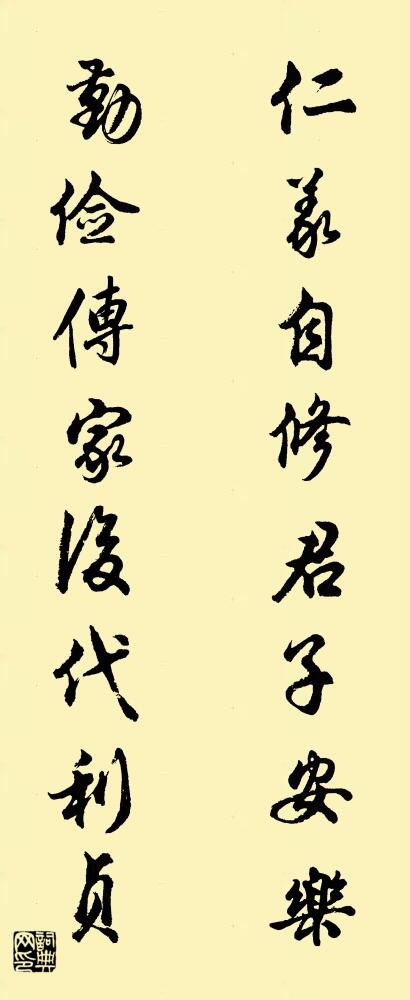 仁義自修君子安樂
勤儉傳家後代利貞
詞典网印